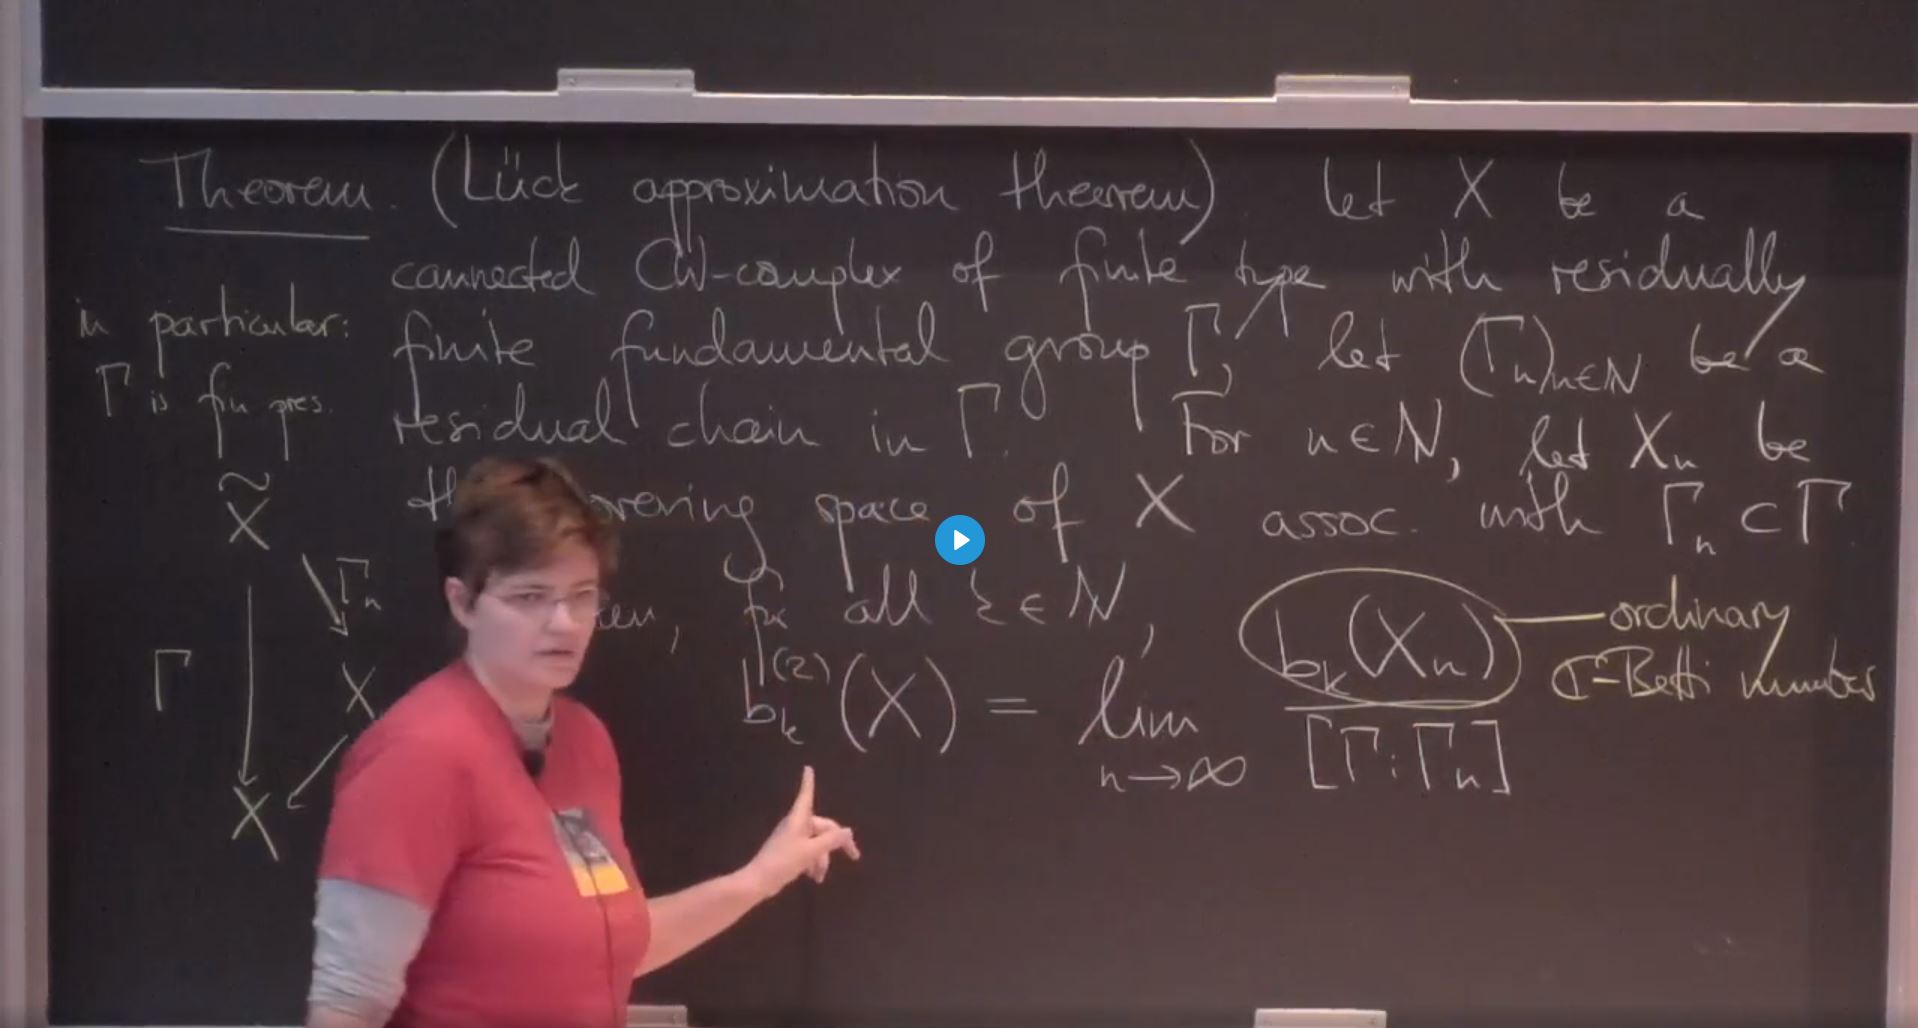 Theorem. (Lück approximation theorem) Let X be a
connected CW-complex of finite type with residually
finite fundamental group Γ, let (Γₙ)ₙ∈ℕ be a
residual chain in Γ. For n∈ℕ, let Xₙ be
covering space of X assoc. with Γₙ ⊂ Γ.
for all k∈ℕ,
bₖ⁽²⁾(X) = lim n→∞ bₖ(Xₙ) / [Γ:Γₙ]
ordinary
ℂ-Betti number
in particular:
Γ is fin pres.
X̃
Γₙ
Γ
X
X